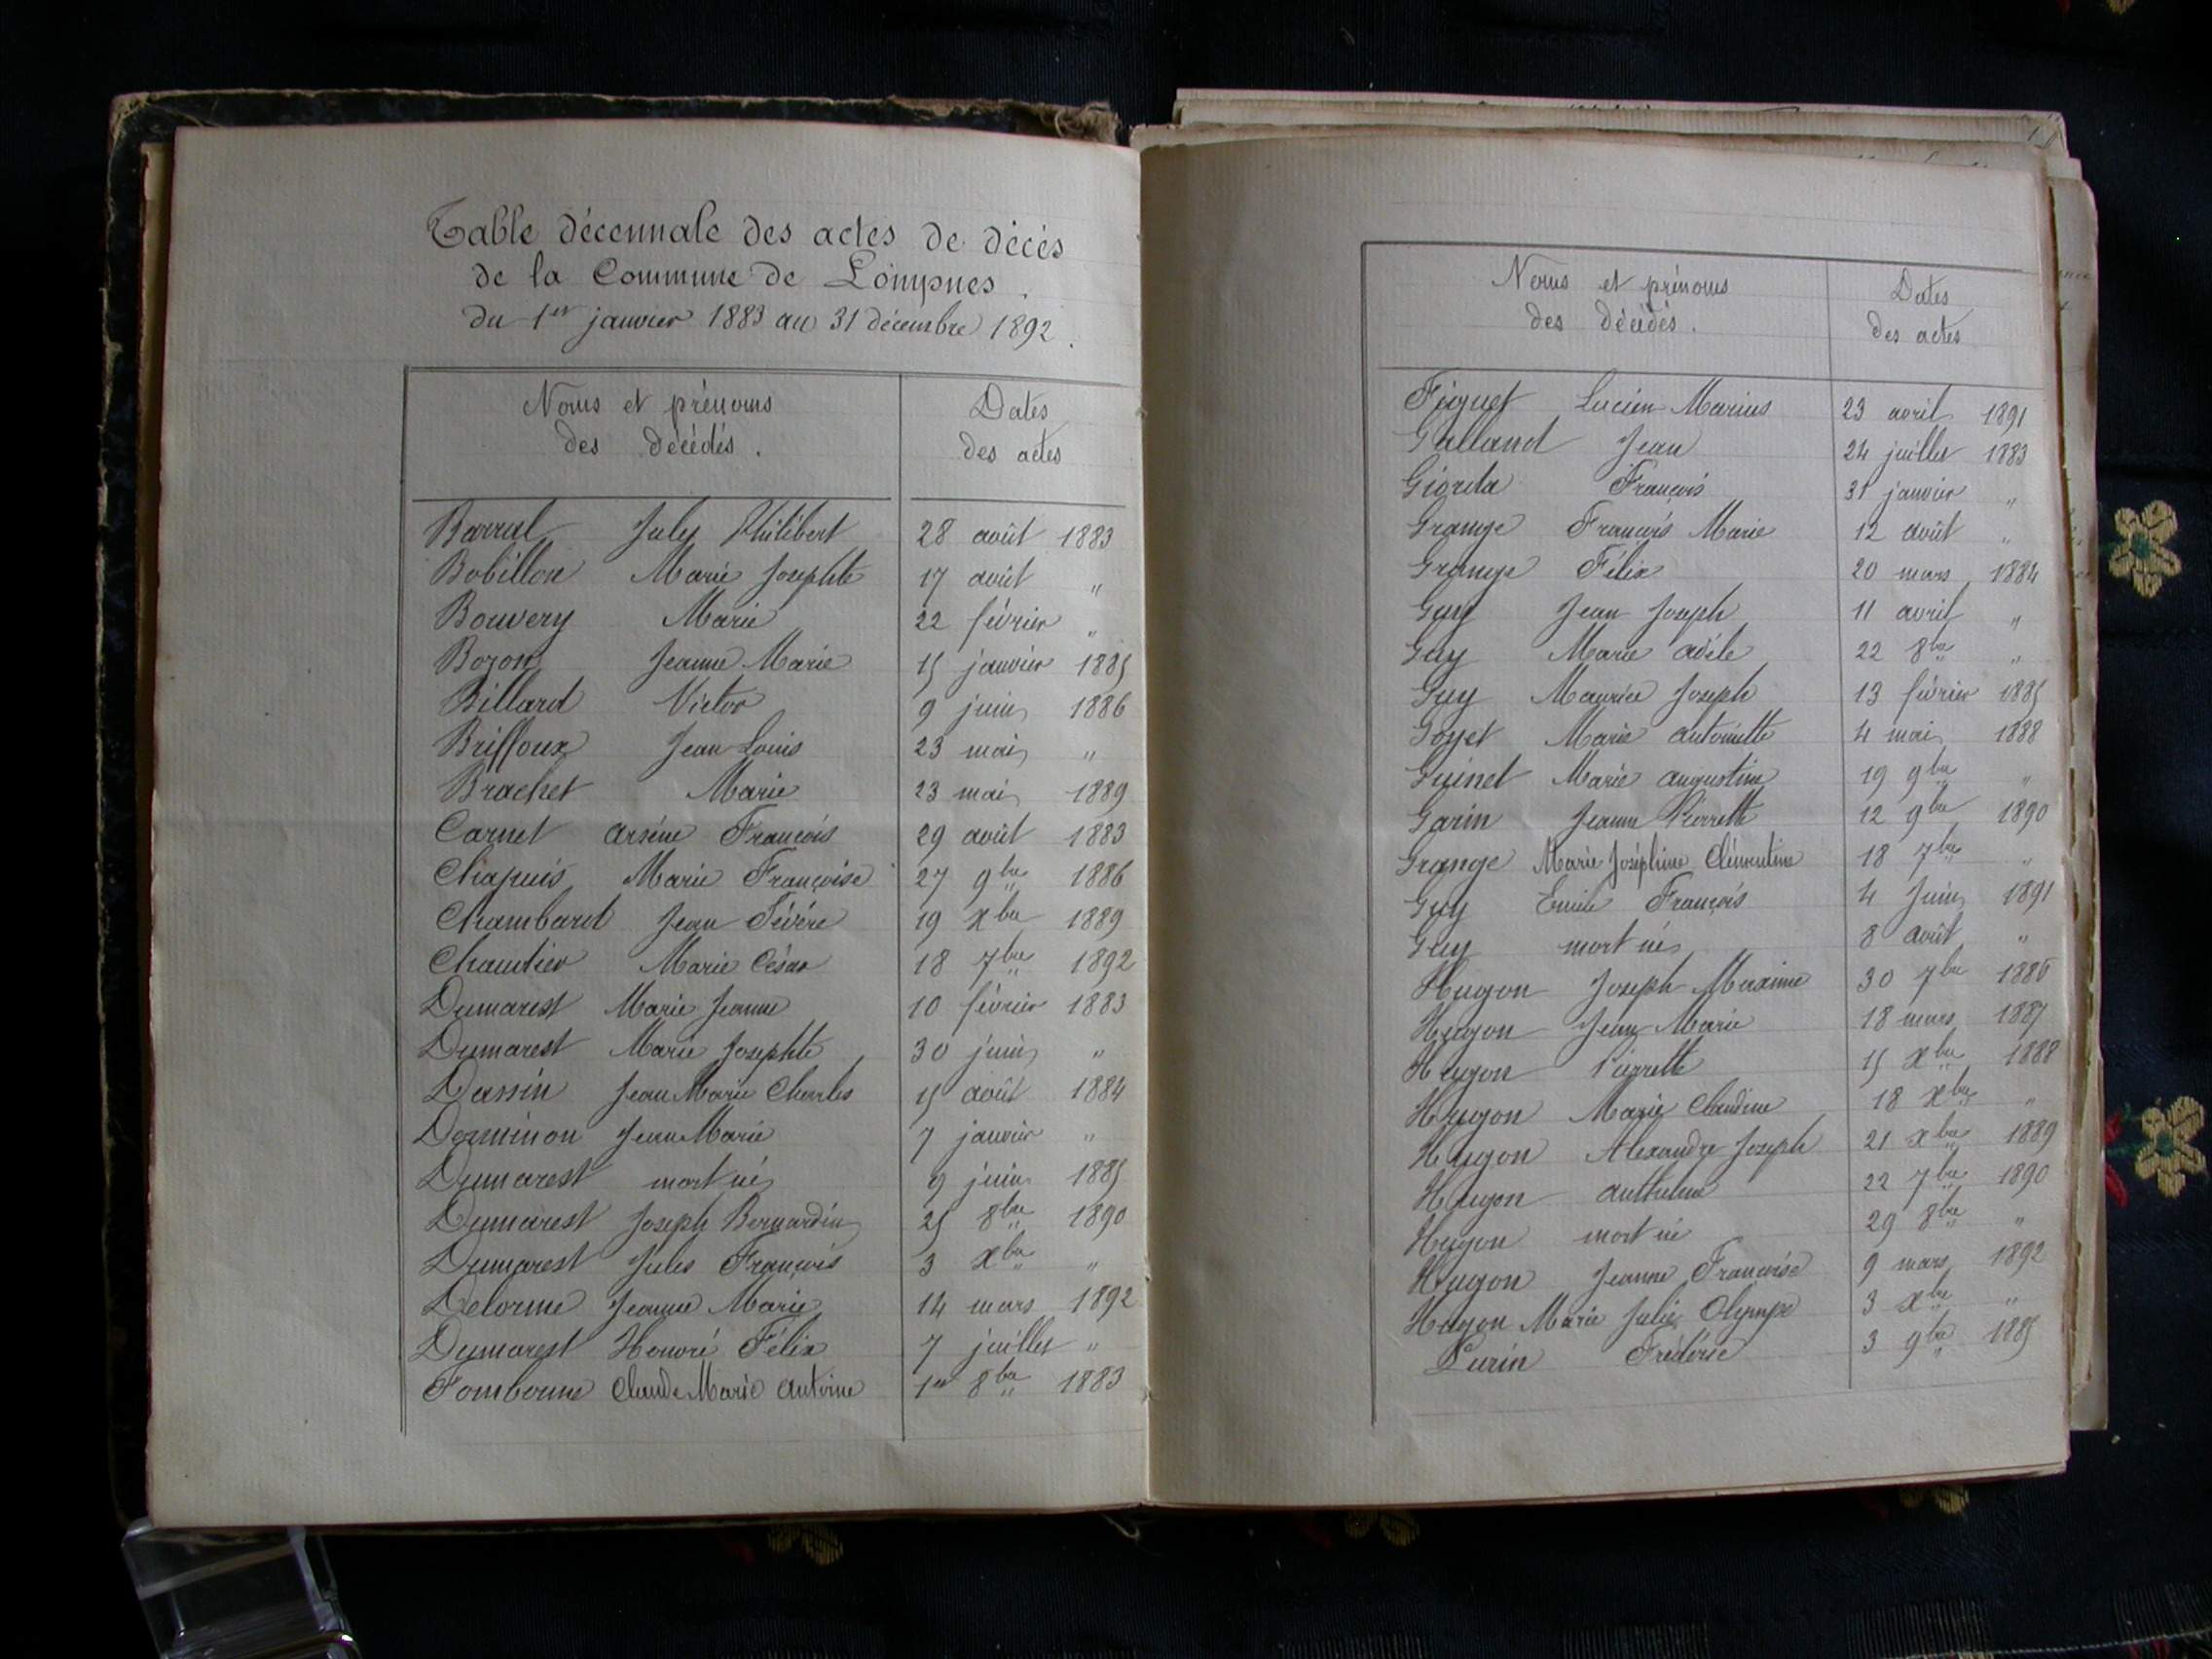 Table décennale des actes de décès
de la Commune de Lompnes.
du 1er janvier 1883 au 31 décembre 1892.
Noms et prénoms
des décédés.
Dates
des actes
Barral Jules Philibert 28 août 1883
Bobillon Marie Josephte 17 août "
Bouvery Marie 22 février "
Bozon Jeanne Marie 15 janvier 1885
Billard Victor 9 juin 1886
Briffoux Jean Louis 23 mai "
Brachet Marie 23 mai 1889
Carnet arsène François 29 août 1883
Chapuis Marie Françoise 27 9bre 1886
Chambard Jean Sévère 19 Xbre 1889
Chautier Marie César 18 7bre 1892
Dumarest Marie Jeanne 10 février 1883
Dumarest Marie Josephte 30 juin "
Dassin Jean Marie Charles 15 août 1884
Dominon Jean Marie 7 janvier "
Dumarest mort né 9 juin 1885
Dumarest Joseph Bernardin 25 8bre 1890
Dumarest Jules François 3 Xbre "
Delorme Jeanne Marie 14 mars 1892
Dumarest Honoré Félix 7 juillet "
Fombonne Claude Marie antoine 1er 8bre 1883
Noms et prénoms
des décédés.
Dates
des actes
Figuet Lucien Marius 23 avril 1891
Galland Jean 24 juillet 1883
Giorda François 31 janvier "
Grange François Marie 12 août "
Grange Félix 20 mars 1884
Guy Jean Joseph 11 avril "
Guy Marie adèle 22 8bre "
Guy Maurice Joseph 13 février 1885
Goyet Marie antoinette 4 mai 1888
Guinet Marie augustine 19 9bre "
Garin Jeanne Pierrette 12 9bre 1890
Grange Marie Joséphine Clémentine 18 7bre "
Guy Emile François 4 Juin 1891
Guy mort né 8 août "
Hugon Joseph Maxime 30 7bre 1886
Hugon Jean Marie 18 mars 1887
Hugon Pierrette 15 Xbre 1888
Hugon Marie Claudine 18 Xbre "
Hugon Alexandre Joseph 21 Xbre 1889
Hugon anthelme 22 7bre 1890
Hugon mort né 29 8bre "
Hugon Jeanne Françoise 9 mars 1892
Hugon Marie Julie Olympe 3 Xbre "
Lurin Fréderic 3 9bre 1885